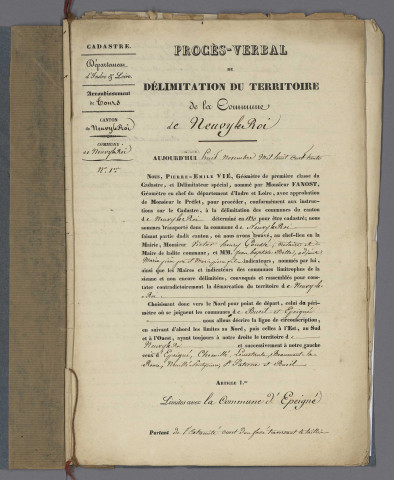 CADASTRE.
Département
d'Indre & Loire
Arrondissement
de Tours
CANTON
de Neuvy le Roi
COMMUNE
de Neuvy le Roi
N.° 1.er
PROCÈS-VERBAL
DE
DÉLIMITATION DU TERRITOIRE
de la Commune
de Neuvy le Roi
AUJOURD'HUI huit novembre mil huit cent trente
NOUS, PIERRE-EMILE VIÉ, Géomètre de première classe du
Cadastre, et Délimitateur spécial, nommé par Monsieur FANOST,
Géomètre en chef du département d'Indre et Loire, avec approbation
de Monsieur le Préfet, pour procéder, conformément aux instruc-
tions sur le Cadastre, à la délimitation des communes du canton
de Neuvy le Roi déterminé en 1830 pour être cadastré; nous
sommes transporté dans la commune de Neuvy le Roi
faisant partie dudit canton, où nous avons trouvé, au chef-lieu en la
Mairie, Monsieur Victor henry notaire et
Maire de ladite commune, et MM. Jean baptiste adjoint
indicateurs, nommés par lui,
ainsi que les Maires et indicateurs des communes limitrophes de la
sienne et non encore délimitées, convoqués et rassemblés pour cons-
tater contradictoirement la démarcation du territoire de Neuvy le
Roi.
Choisissant donc vers le Nord pour point de départ, celui du péri-
mètre où se joignent les communes de Bueil et Epeigné
nous allons décrire la ligne de circonscription,
en suivant d'abord les limites au Nord, puis celles à l'Est, au Sud
et à l'Ouest, ayant toujours à notre droite le territoire de
Neuvy le Roi et successivement à notre gauche
ceux de Epeigné, Chemillé, Beaumont la
Ronce, St Paterne et Bueil.
ARTICLE 1.er
Limites avec la Commune d'Epeigné
Partant de l'extrémité ouest d'un fossé